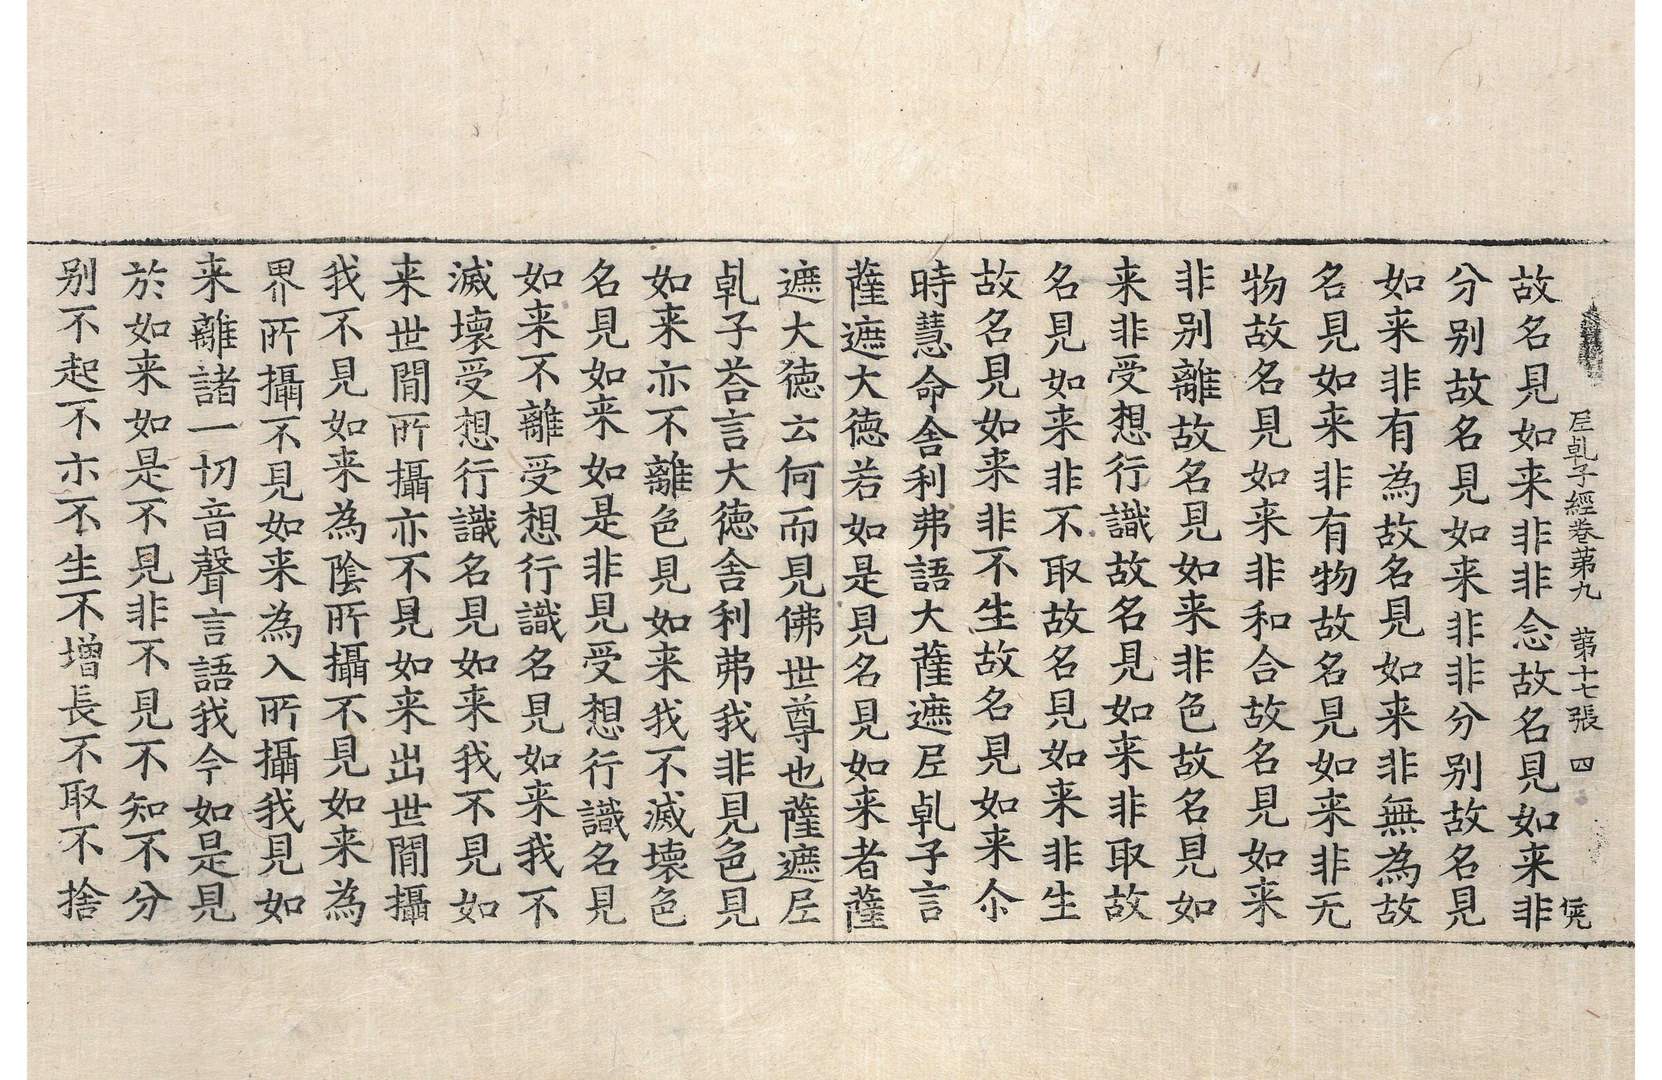 𡰱乹子經卷苐九　苐十七張　四
故名見如来非非念故名見如来非
分别故名見如来非非分别故名見
如来非有為故名見如来非無為故
名見如来非有物故名見如来非无
物故名見如来非和合故名見如来
非别離故名見如来非色故名見如
来非受想行識故名見如来非取故
名見如来非不取故名見如来非生
故名見如来非不生故名見如来尒
時慧命舎利弗語大薩遮𡰱乹子言
薩遮大徳若如是見名見如来者薩
遮大徳云何而見佛世尊也薩遮𡰱
乹子荅言大徳舎利弗我非見色見
如来亦不離色見如来我不滅壊色
名見如来如是非見受想行識名見
如来不離受想行識名見如来我不
滅壊受想行識名見如来我不見如
来世間所攝亦不見如来出世間攝
我不見如来為陰所攝不見如来為
界所攝不見如来為入所攝我見如
来離諸一切音聲言語我今如是見
於如来如是不見非不見不知不分
别不起不亦不生不增長不取不捨